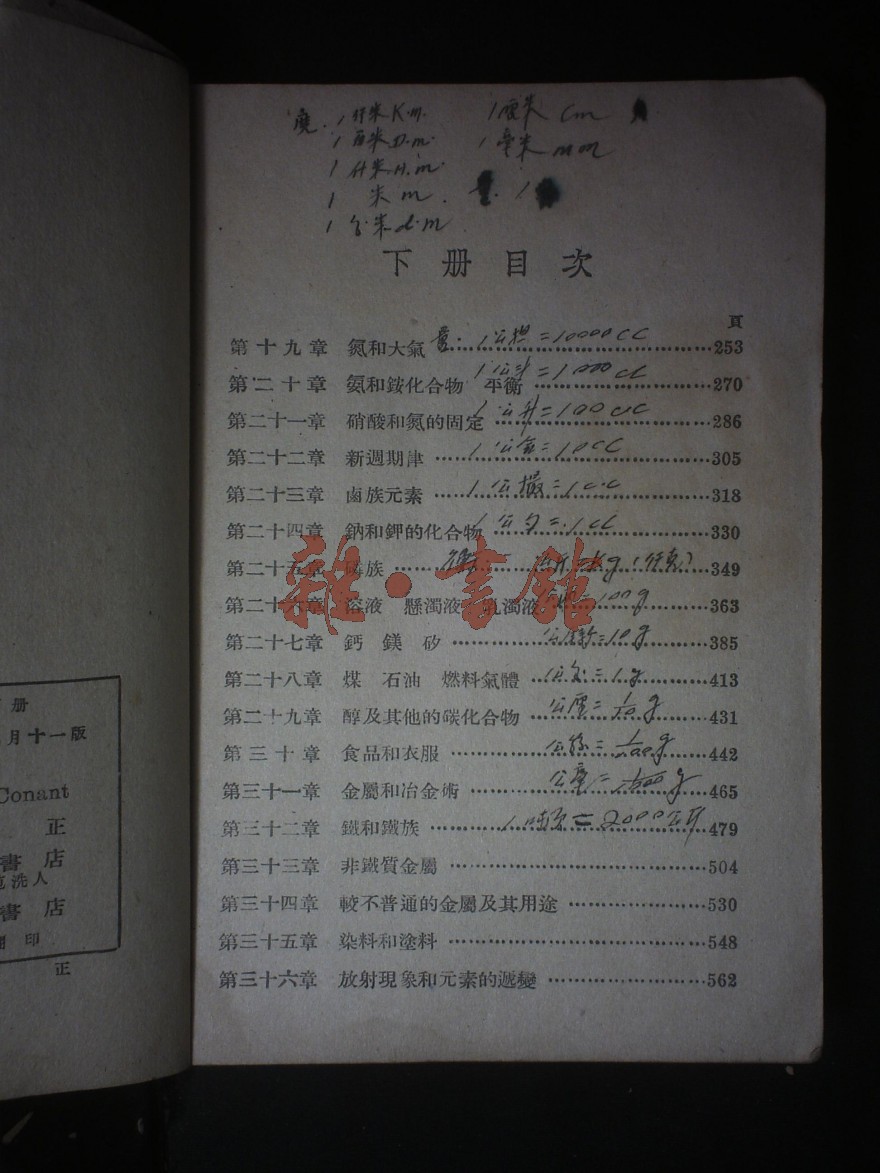 度. 1 仟米 K.m. 1 厘米 Cm
1 百米 D.m. 1 毫米 mm
1 什米 H.m.
1 米 m.
1 分米 d.m
下册目次
頁
第十九章 氮和大氣 253
量: 1 公担 = 10000 CC
第二十章 氨和銨化合物 平衡 270
1 公斗 = 1000 CC
第二十一章 硝酸和氮的固定 286
1 公升 = 100 CC
第二十二章 新週期律 305
1 公合 = 10 CC
第二十三章 鹵族元素 318
1 公撮 = 1 C.C
第二十四章 鈉和鉀的化合物 330
1 公勺 = .1 CC
第二十五章 磷族 349
kg (仟克)
第二十六章 溶液 懸濁液 乳濁液 363
100g
第二十七章 鈣 鎂 矽 385
= 10 g
第二十八章 煤 石油 燃料氣體 413
= 1 g
第二十九章 醇及其他的碳化合物 431
公厘 = 1/10 g
第三十章 食品和衣服 442
公絲 = 1/100 g
第三十一章 金屬和冶金術 465
公毫 = 1/1000 g
第三十二章 鐵和鐵族 479
= 2000
第三十三章 非鐵質金屬 504
第三十四章 較不普通的金屬及其用途 530
第三十五章 染料和塗料 548
第三十六章 放射現象和元素的遞變 562
雜·書館
册
月十一版
Conant
正
書店
洗人
書店
印
正